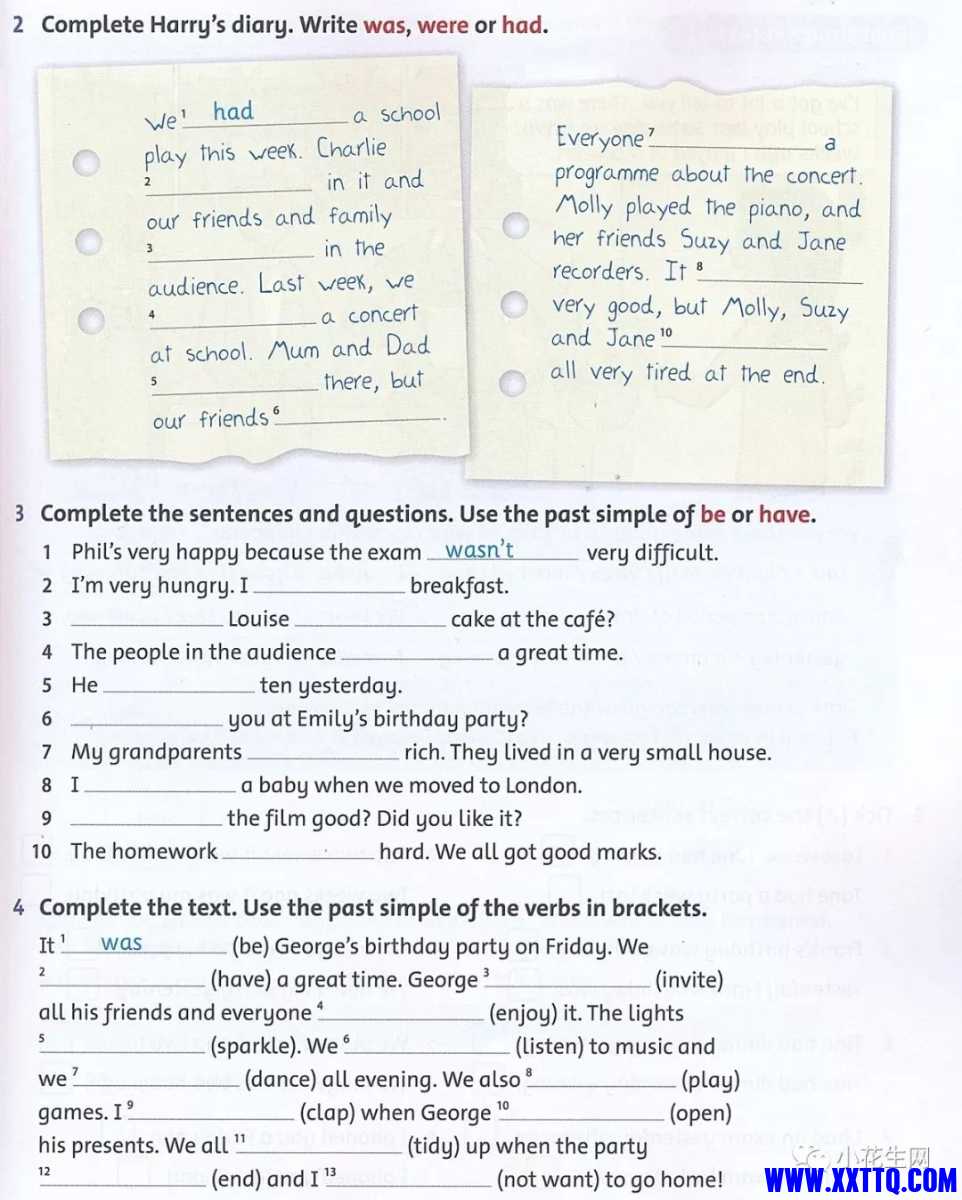 2 Complete Harry's diary. Write was, were or had.
We 1 had a school
play this week. Charlie
2 in it and
our friends and family
3 in the
audience. Last week, we
4 a concert
at school. Mum and Dad
5 there, but
our friends 6 .
Everyone 7 a
programme about the concert.
Molly played the piano, and
her friends Suzy and Jane
recorders. It 8
very good, but Molly, Suzy
and Jane 10
all very tired at the end.
3 Complete the sentences and questions. Use the past simple of be or have.
1 Phil's very happy because the exam wasn't very difficult.
2 I'm very hungry. I breakfast.
3 Louise cake at the café?
4 The people in the audience a great time.
5 He ten yesterday.
6 you at Emily's birthday party?
7 My grandparents rich. They lived in a very small house.
8 I a baby when we moved to London.
9 the film good? Did you like it?
10 The homework hard. We all got good marks.
4 Complete the text. Use the past simple of the verbs in brackets.
It 1 was (be) George's birthday party on Friday. We
2 (have) a great time. George 3 (invite)
all his friends and everyone 4 (enjoy) it. The lights
5 (sparkle). We 6 (listen) to music and
we 7 (dance) all evening. We also 8 (play)
games. I 9 (clap) when George 10 (open)
his presents. We all 11 (tidy) up when the party
12 (end) and I 13 (not want) to go home!
小花生网
WWW.XXTTQ.COM